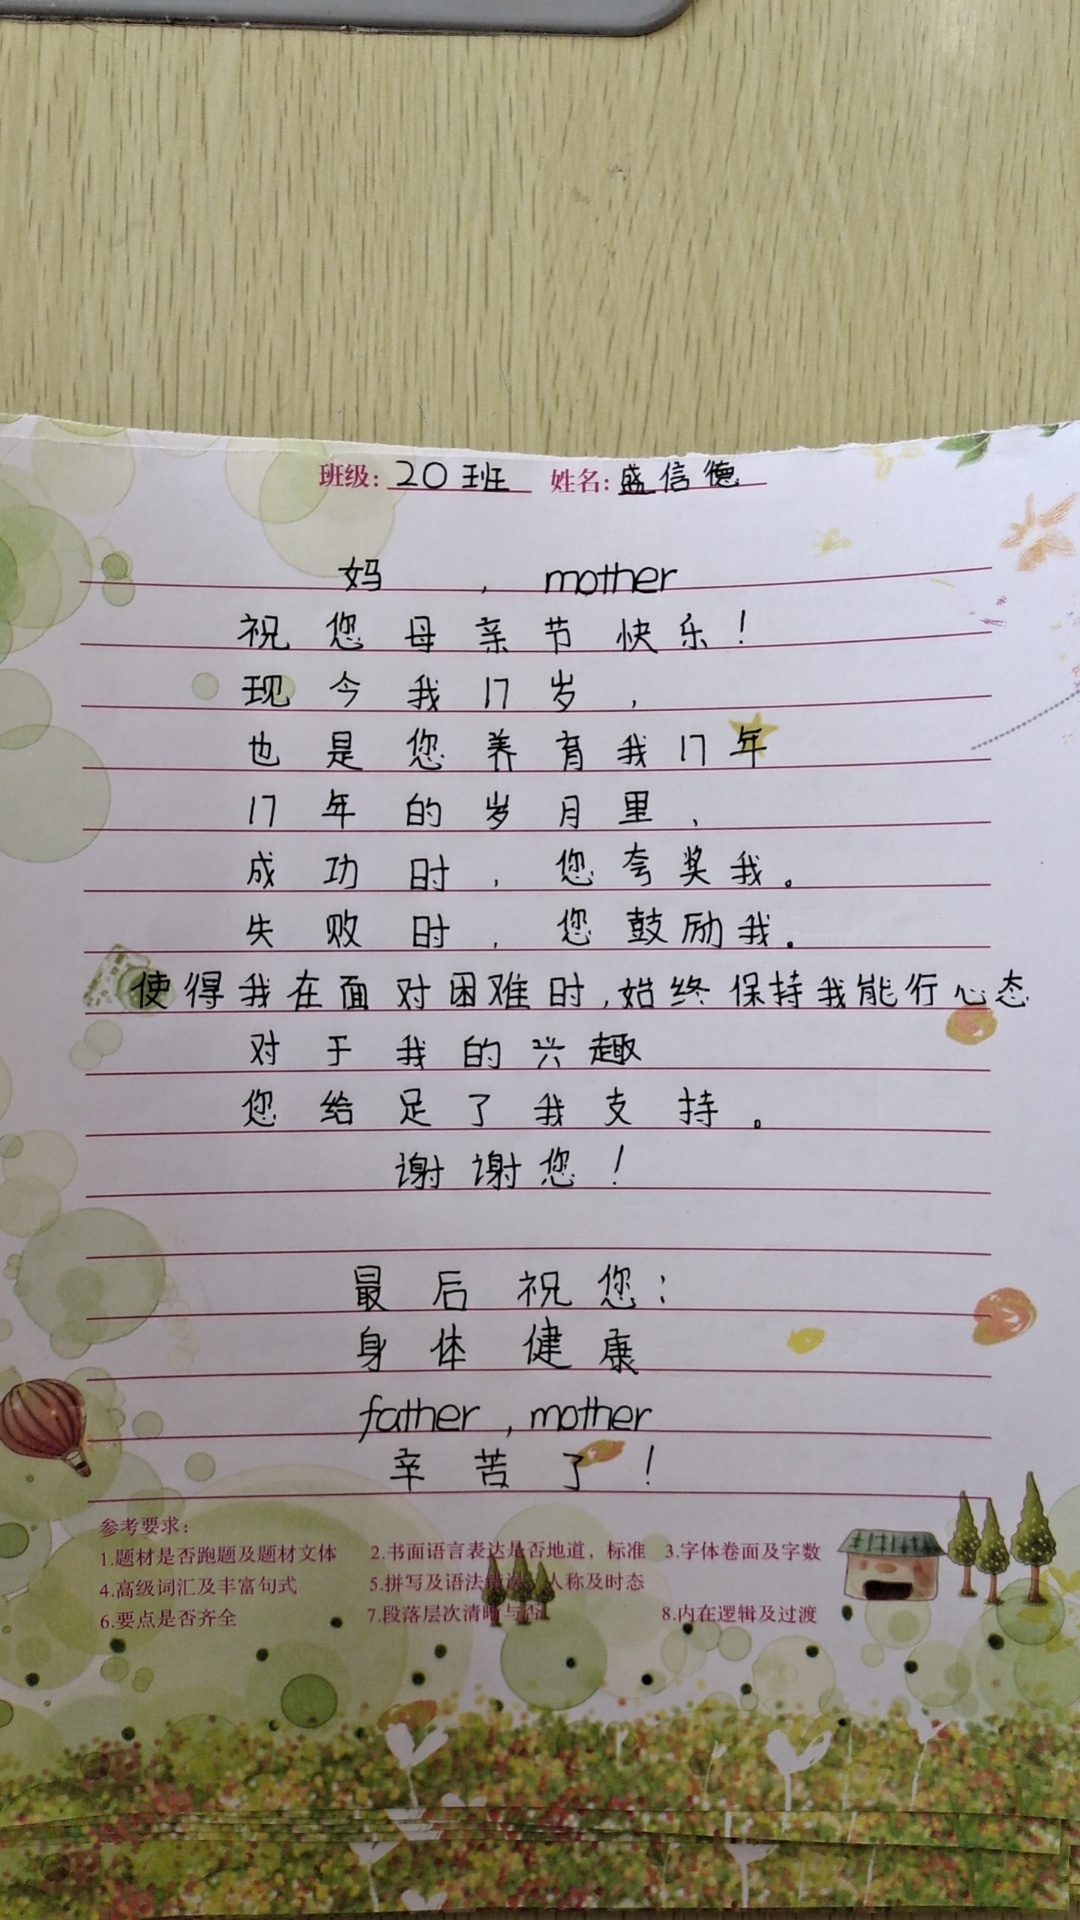 班级: 20班 姓名: 盛信德
妈 , mother
祝您母亲节快乐!
现今我17岁,
也是您养育我17年
17年的岁月里,
成功时,您夸奖我。
失败时,您鼓励我。
使得我在面对困难时,始终保持我能行心态
对于我的兴趣
您给足了我支持。
谢谢您!
最后祝您:
身体健康
father, mother
辛苦了!
参考要求:
1.题材是否跑题及题材文体 2.书面语言表达是否地道，标准 3.字体卷面及字数
4.高级词汇及丰富句式 5.拼写及语法错误，人称及时态
6.要点是否齐全 7.段落层次清晰与否 8.内在逻辑及过渡